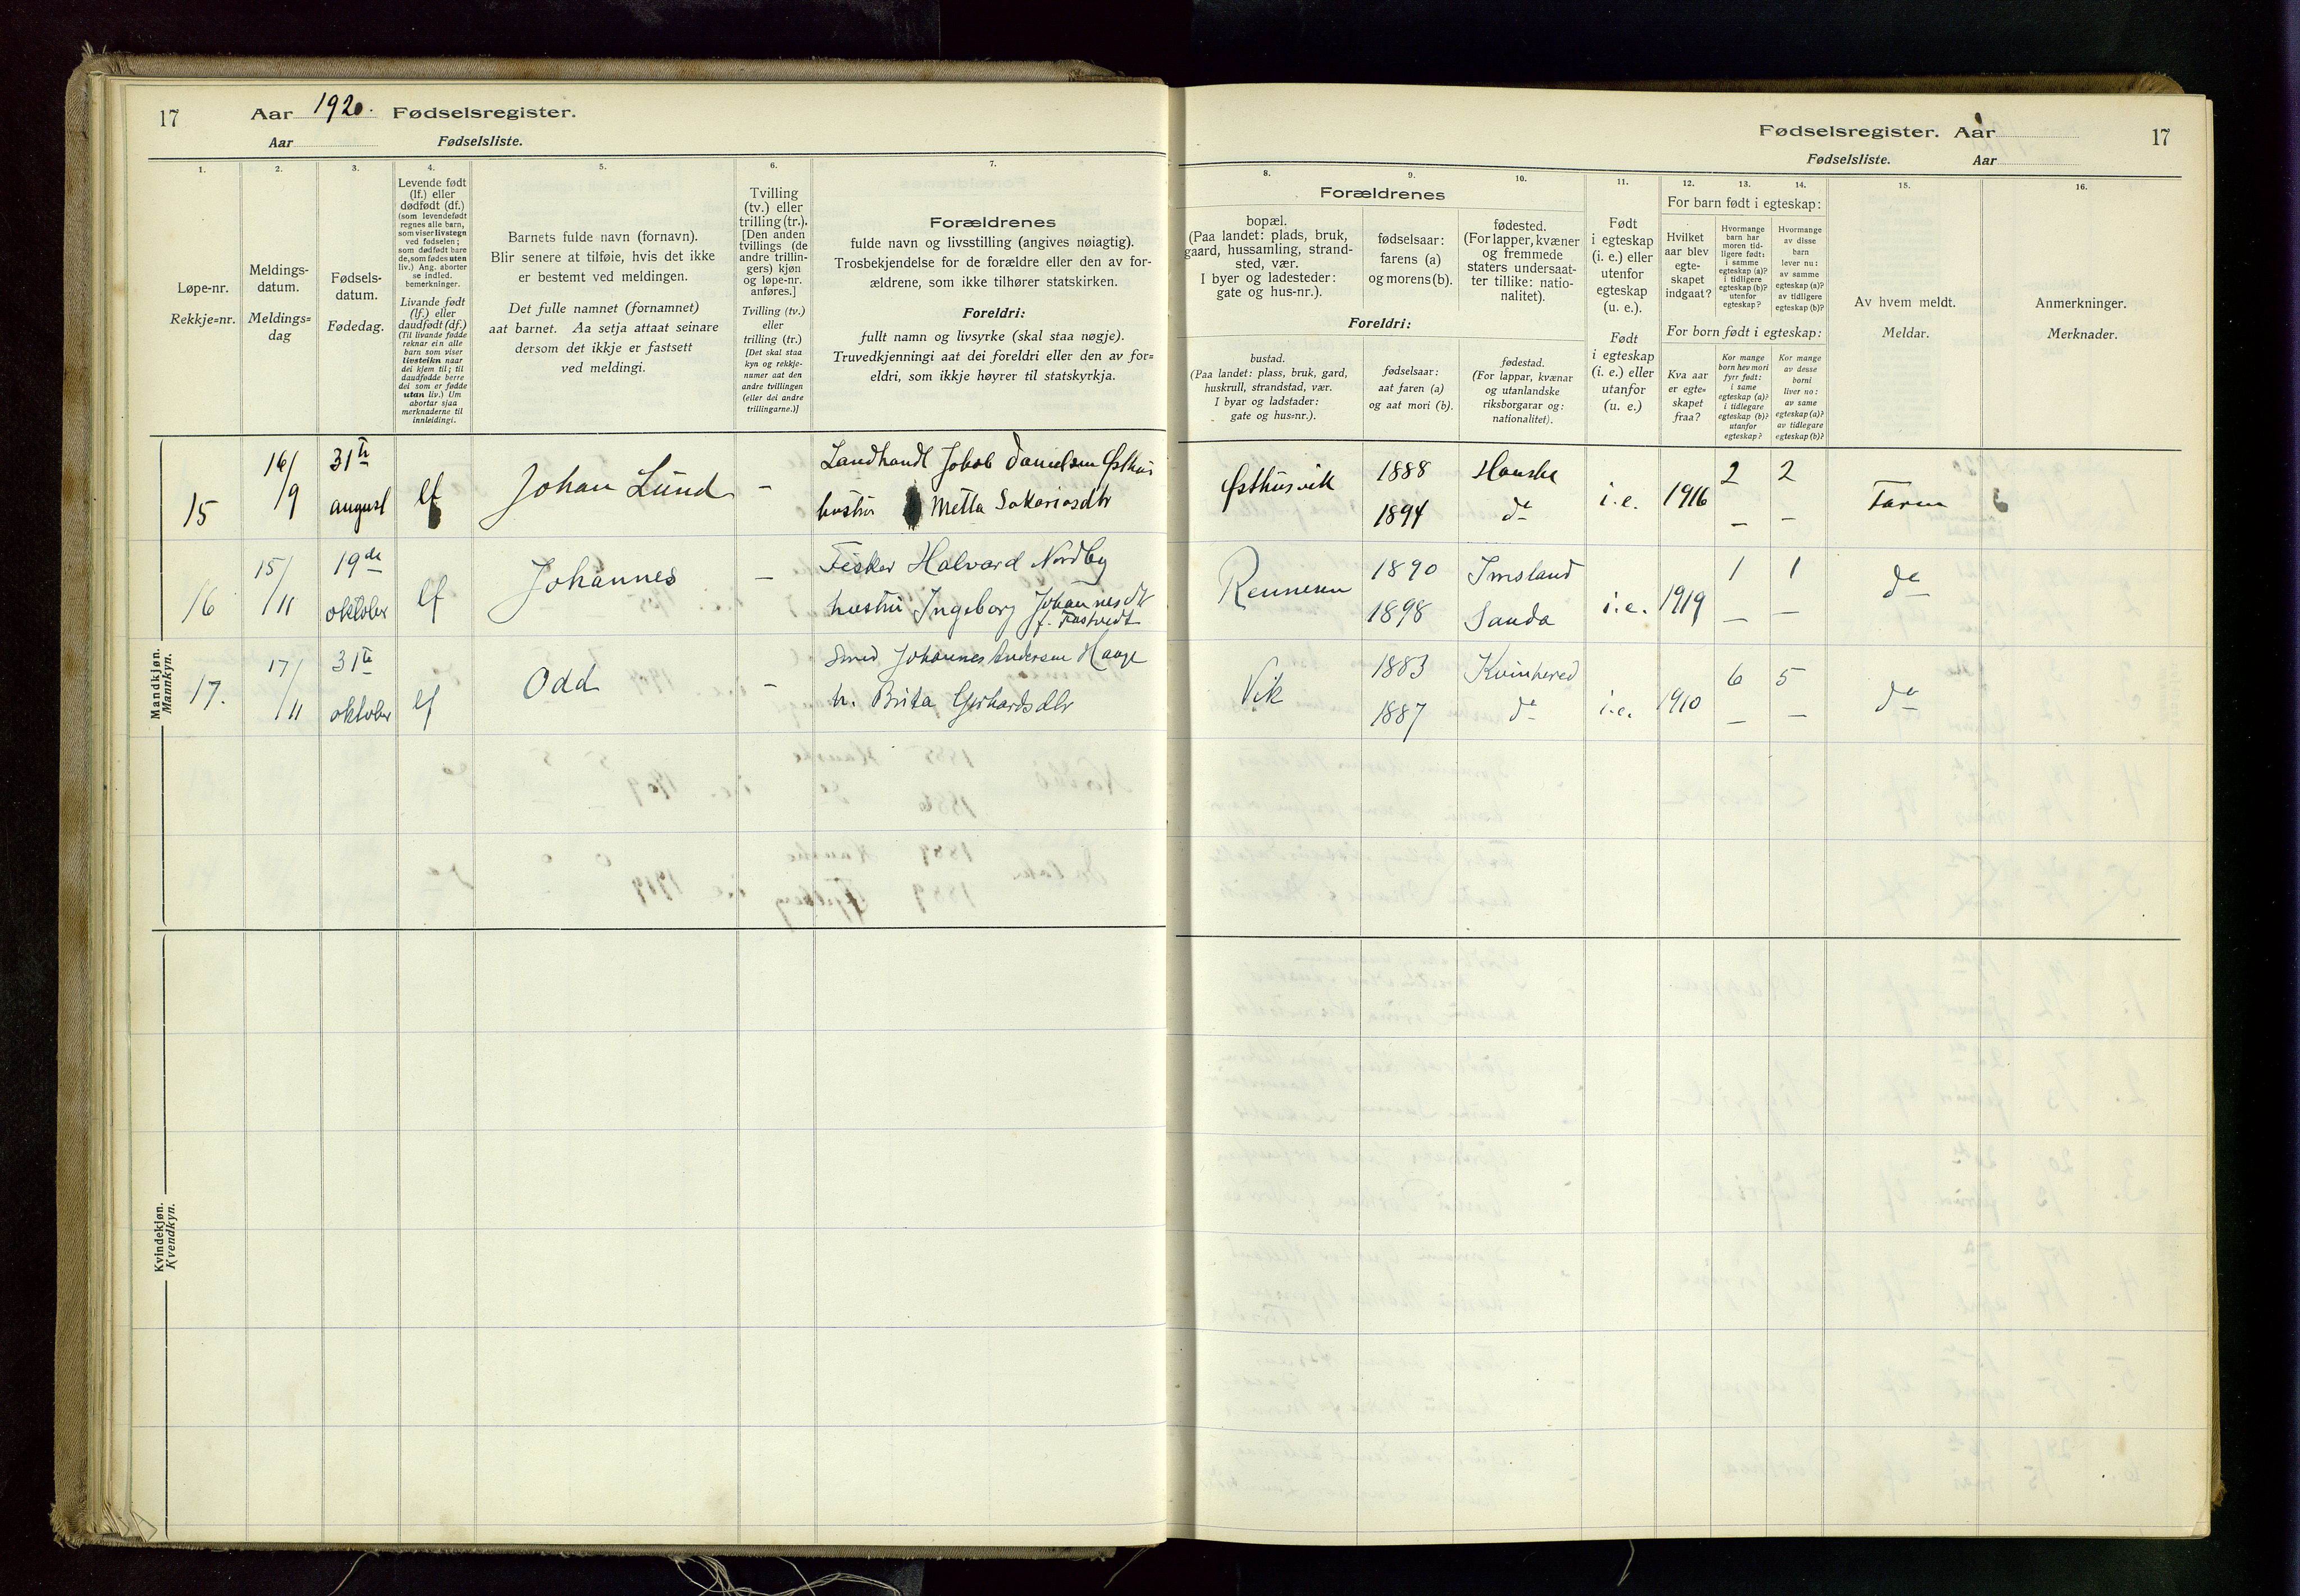 17 Aar 1920. Fødselsregister.
Aar Fødselsliste.
1.
Løpe-nr.
Rekkje=nr.
2.
Meldings-
datum.
Meldings=
dag
3.
Fødsels-
datum.
Fødedag.
4.
Levende født
(lf.) eller
dødfødt (df.)
(som levendefødt
regnes alle barn,
som viser livstegn
ved fødselen;
som dødfødt bare
de, som fødes uten
liv.) Ang. aborter
se indled.
bemerkninger.
Livande født
(lf.) eller
daudfødt (df.)
(Til livande fødde
reknar ein alle
barn som viser
livsteikn naar
dei kjem til; til
daudfødde berre
dei som er fødde
utan liv.) Um
abortar sjaa
merknaderne til
innleidingi.
5.
Barnets fulde navn (fornavn).
Blir senere at tilføie, hvis det ikke
er bestemt ved meldingen.
Det fulle namnet (fornamnet)
aat barnet. Aa setja attaat seinare
dersom det ikkje er fastsett
ved meldingi.
6.
Tvilling
(tv.) eller
trilling (tr.).
[Den anden
tvillings (de
andre trillin-
gers) kjøn
og løpe-nr.
anføres.]
Tvilling (tv.)
eller
trilling (tr.)
[Det skal staa
kyn og rekkje-
numer aat den
andre tvillingen
(eller dei andre
trillingarne.)]
7.
Forældrenes
fulde navn og livsstilling (angives nøiagtig).
Trosbekjendelse for de forældre eller den av for-
ældrene, som ikke tilhører statskirken.
Foreldri:
fullt namn og livsyrke (skal staa nøgje).
Truvedkjenningi aat dei foreldri eller den av for=
eldri, som ikkje høyrer til statskyrkja.
Mandkjøn.
Mannkyn.
15 16/9 31te august lf Johan Lund - Landhandl Jakob Danielsen Østhus
hustru Metta Sakariasdtr
16 15/11 19de oktober lf Johannes - Fisker Halvard Nordby
hustru Ingeborg Johannesdtr
17. 17/11 31te oktober lf Odd - Smed Johannes Andersen Hauge
h. Brita Gerhardsdtr
Kvindekjøn.
Kvendkyn.
Fødselsregister. Aar 17
Fødselsliste. Aar
8.
9.
10.
Forældrenes
bopæl.
(Paa landet: plads, bruk,
gaard, hussamling, strand-
sted, vær.
I byer og ladesteder:
gate og hus-nr.).
fødselsaar:
farens (a)
og morens (b).
fødested.
(For lapper, kvæner
og fremmede
staters undersaat-
ter tillike: natio-
nalitet).
Foreldri:
bustad.
(Paa landet: plass, bruk, gard,
huskrull, strandstad, vær.
I byar og ladstader:
gate og hus=nr.).
fødselsaar:
aat faren (a)
og aat mori (b).
fødestad.
(For lappar, kvænar
og utanlandske
riksborgarar og:
nationalitet).
11.
Født
i egteskap
(i. e.) eller
utenfor
egteskap
(u. e.).
Født
i egteskap
(i. e.) eller
utanfor
(u. e.)
12.
13.
14.
For barn født i egteskap:
Hvilket
aar blev
egte-
skapet
indgaat?
Hvormange
barn har
moren tid-
ligere født:
i samme
egteskap (a)?
i tidligere
egteskap (b)?
utenfor
egteskap?
Hvormange
av disse
barn
lever nu:
av samme
egteskap (a)?
av tidligere
egteskap (b)?
For born født i egteskap:
Kva aar
er egte=
skapet
fraa?
Kor mange
born hev mori
fyrr født:
i same
egteskap (a)?
i tidlegare
egteskap (b)?
utanfor
egteskap?
Kor mange
av desse
borni
liver no:
av same
egteskap (a)?
av tidlegare
egteskap (b)?
15.
Av hvem meldt.
Meldar.
16.
Anmerkninger.
Merknader.
Østhusvik 1888 Hauske 2 2
1894 do i.e. 1916 - - Faren
Rennesen 1890 Imsland 1 1 do
1898 Sauda i.e. 1919 - -
Vik 1883 Kvinhered 6 5 do
1887 do i.e. 1910 - -